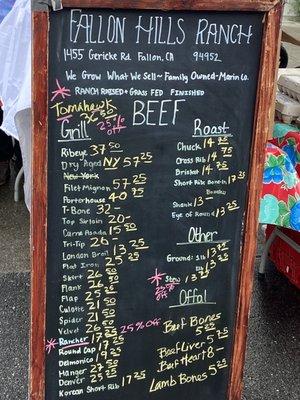 FALLON HILLS RANCH
1455 Gericke Rd Fallon, CA 94952
We Grow What We Sell ~ Family Owned - Marin Co.
RANCH RAISED & GRASS FED FINISHED
TOMAHAWK 36.50
25% OFF
BEEF
Grill
Ribeye 37.50
Dry Aged NY 57.25
New York
Filet Mignon 57.25
Porterhouse 40.75
T-Bone 32-
Top Sirloin 20-
Carne Asada 15-
Tri-Tip 26.50
London Broil 13.25
Flat Iron 25.25
Skirt 26.50
Flank 26.50
Flap 25.25
Culotte 21.50
Spider 21.50
Velvet 26.50
Rancher 17.25 25% OFF
Round Cap 17.25
Delmonico 19.25
Hanger 27.50
Denver 25.25
Korean Short Rib 17.25
Roast
Chuck 14.25
Cross Rib 14.75
Brisket 14.25
Short Ribs Bone-in 17.25
Shank 13-
Eye of Round 13.25
Other
Ground: 1lb 13.75
Stew 13.25
25% OFF
Offal
Beef Bones 5.25
Beef Liver 5.75
Beef Heart 8-
Lamb Bones 5.25